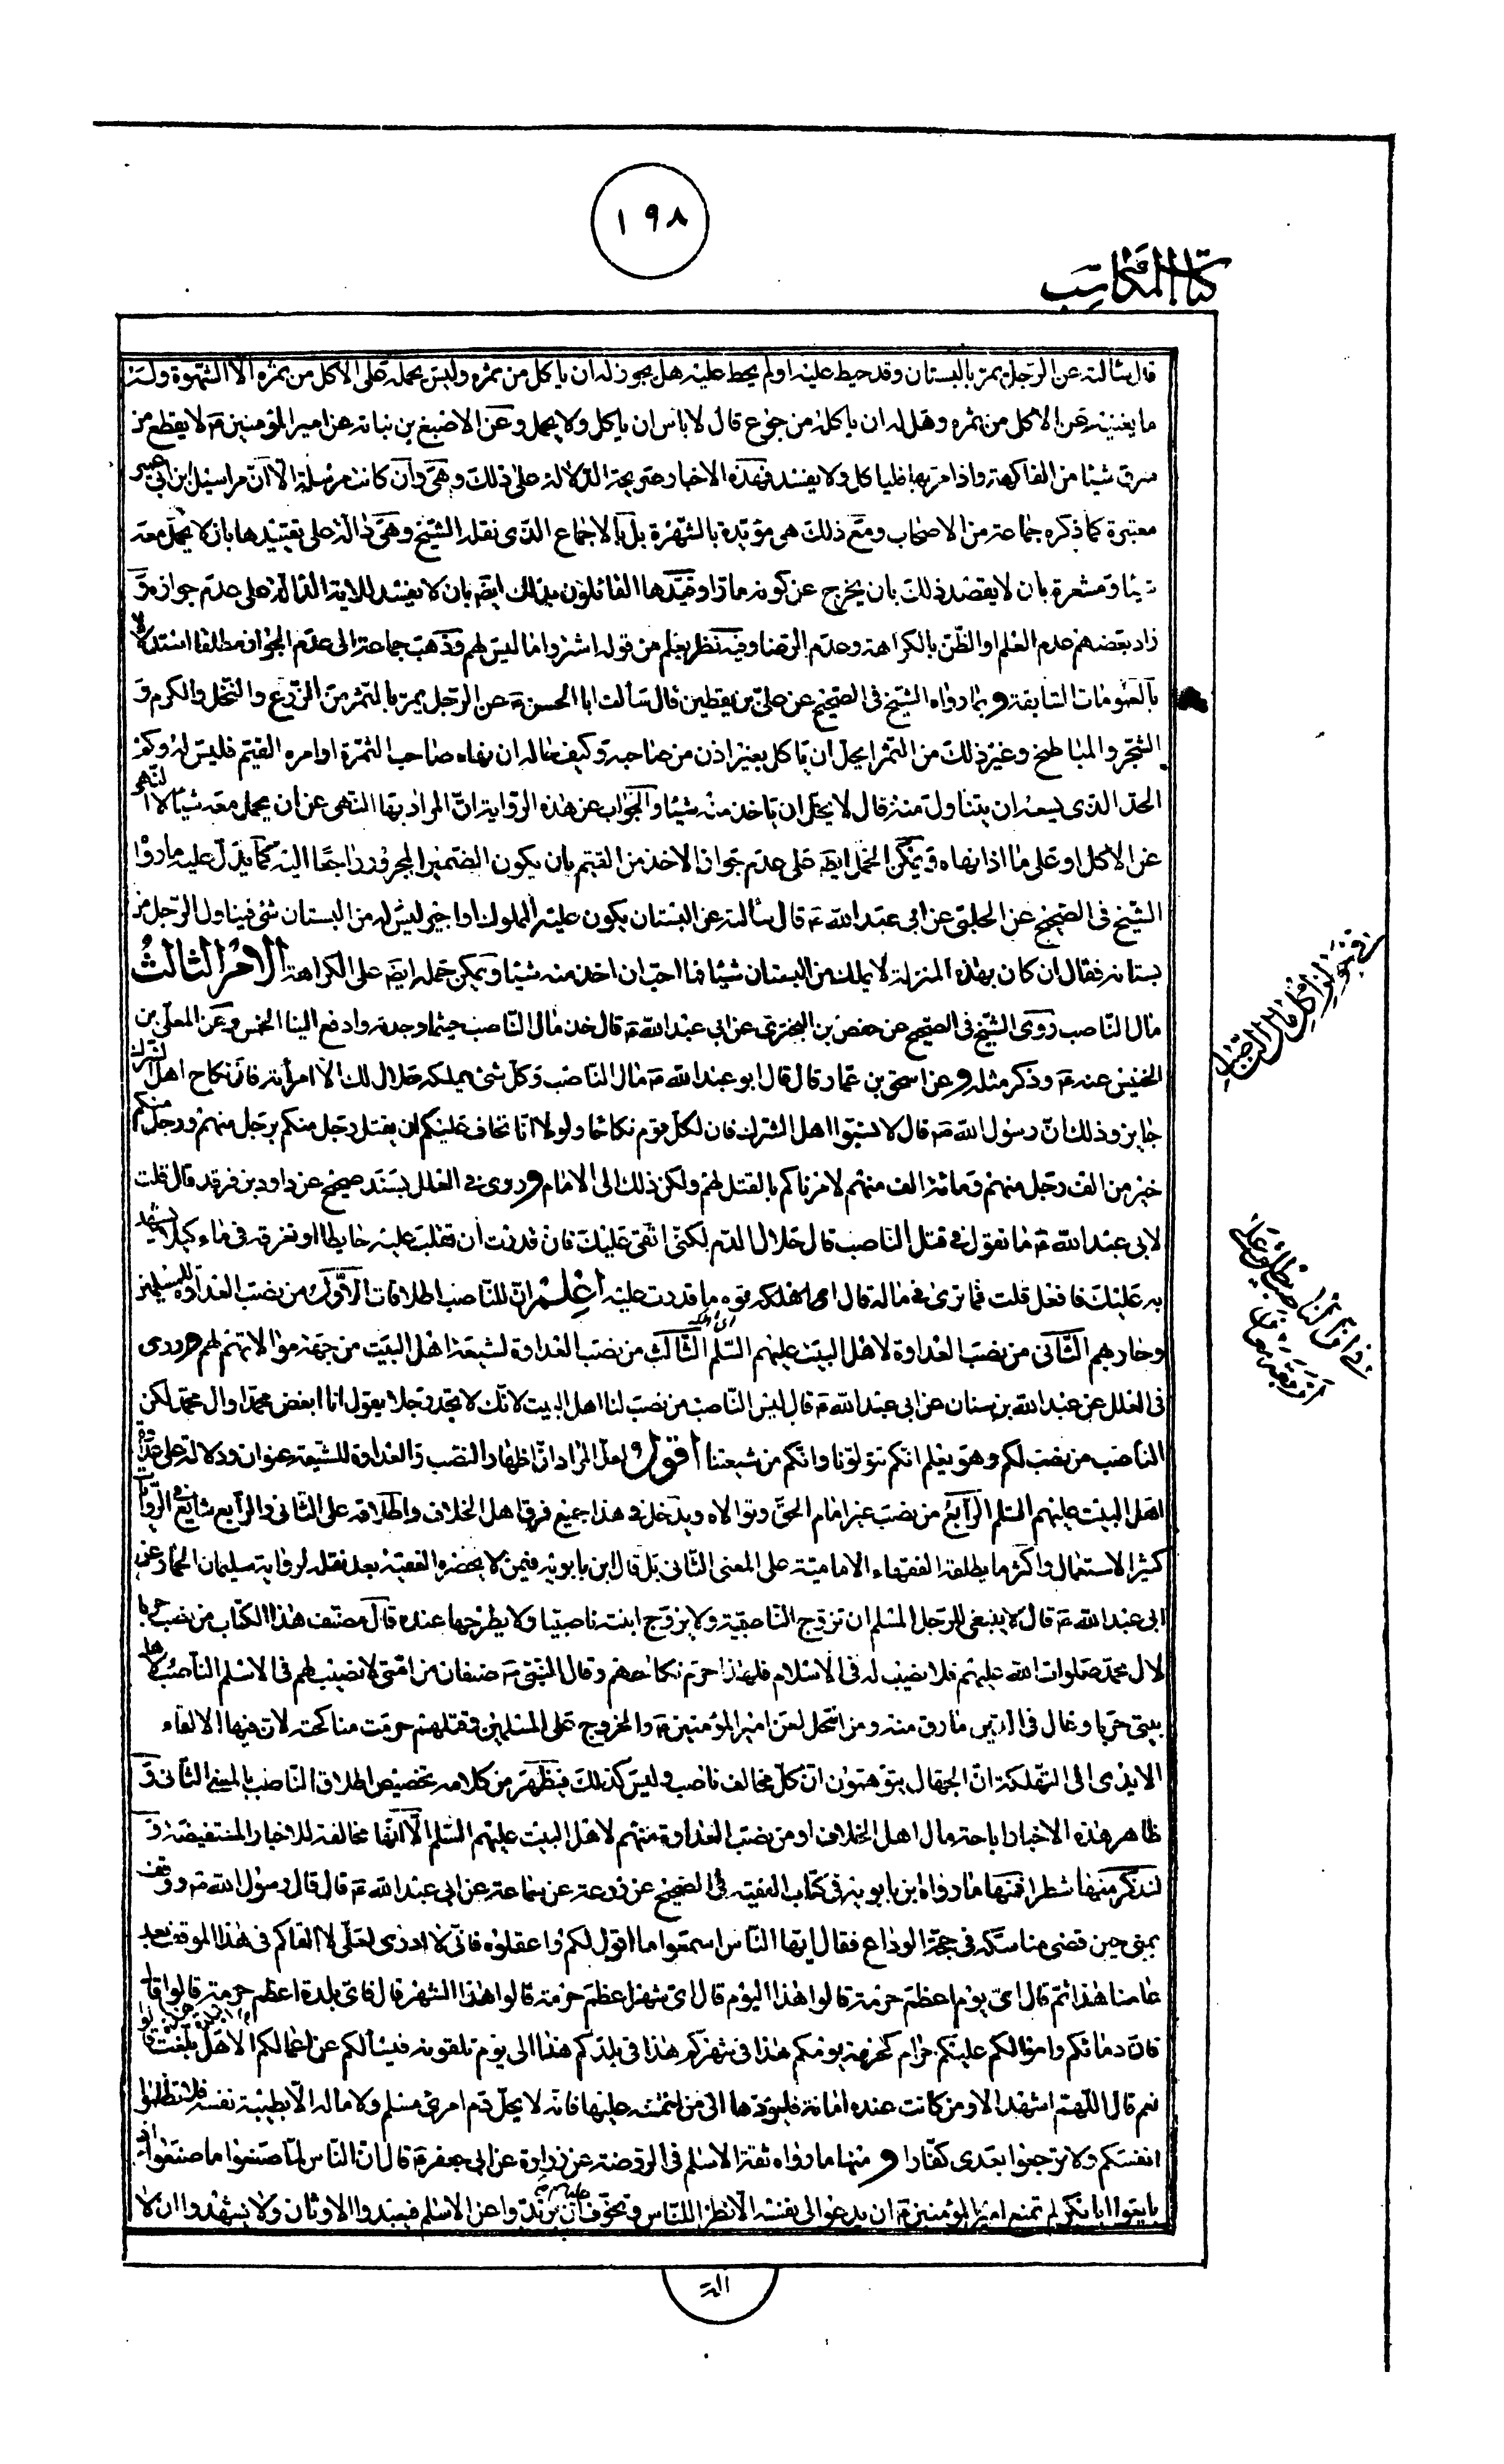 ١٩٨
كتاب المكاسب
قال سألته عن الرجل يمر بالبستان وقد حيط عليه او لم يحط عليه هل يجوز له ان ياكل من ثمره وليس يحمله على الاكل من ثمره الا الشهوة وله
ما يغنيه عن الاكل من ثمره وهل له ان ياكله من جوع قال لا باس ان ياكل ولا يحمل وعن الاصبغ بن نباتة عن امير المؤمنين ع لا يقطع من
سرق شيئا من الفاكهة واذا مر بها فلياكل ولا يفسد فهذه الاخبار صريحة الدلالة على ذلك وهى وان كانت مرسلة الا ان مراسيل ابن ابى عمير
معتبرة كما ذكره جماعة من الاصحاب ومع ذلك هى مؤيدة بالشهرة بل بالاجماع الذى نقله الشيخ وهى دالة على تقييدها بان لا يحمل معه
شيئا ومشعرة بان لا يقصد ذلك بان يخرج عن كونه مارا وقيدها القائلون بذلك ايضا بان لا يفسد للاية الدالة على عدم جوازه و
زاد بعضهم عدم العلم او الظن بالكراهة وعدم الرضا وفيه نظر يعلم من قوله اشتروا ما ليس لهم وذهب جماعة الى عدم الجواز مطلقا استدلالا
بالعمومات السابقة وبما رواه الشيخ فى الصحيح عن على بن يقطين قال سألت ابا الحسن ع عن الرجل يمر بالتمر من الزرع والنخل والكرم و
الشجر والمباطخ وغير ذلك من الثمر ايحل ان ياكل بغير اذن من صاحبه وكيف حاله ان نهاه صاحب الثمرة او امره القيم فليس له وكم
الحد الذى يسعه ان يتناول منه قال لا يحل ان ياخذ منه شيئا والجواب عن هذه الرواية ان المراد بها النهى عن ان يحمل معه شيئا لا النهى
عن الاكل او على ما اذا نهاه ويمكن الحمل ايضا على عدم جواز الاخذ من القيم بان يكون الضمير المجرور راجعا اليه كما يدل عليه ما رواه
الشيخ فى الصحيح عن الحلبى عن ابى عبد الله ع قال سألته عن البستان يكون عليه المملوك او اجير ليس له من البستان شئ فيناول الرجل من
بستانه فقال ان كان بهذه المنزلة لا يملك من البستان شيئا فما احب ان اخذ منه شيئا ويمكن حمله ايضا على الكراهة الامر الثالث
مال الناصب روى الشيخ فى الصحيح عن حفص بن البخترى عن ابى عبد الله ع قال خذ مال الناصب حيثما وجدته وادفع الينا الخمس وعن المعلى بن
الخنيس عنه ع وذكر مثله وعن اسحق بن عمار قال قال ابو عبد الله ع مال الناصب وكل شئ يملكه حلال لك الا امرأته فان نكاح اهل الشرك
جايز وذلك ان رسول الله ص قال لا تسبوا اهل الشرك فان لكل قوم نكاحا ولولا انا نخاف عليكم ان يقتل رجل منكم برجل منهم ورجل منكم
خير من الف رجل منهم ومائة الف منهم لامرناكم بالقتل لهم ولكن ذلك الى الامام وروى فى العلل بسند صحيح عن داود بن فرقد قال قلت
لابى عبد الله ع ما تقول فى قتل الناصب قال حلال الدم لكنى اتقى عليك فان قدرت ان تقلب عليه حايطا او تغرقه فى ماء كيلا يشهد
به عليك فافعل قلت فما ترى فى ماله قال توه ما قدرت عليه اعلم ان للناصب اطلاقات الاول من نصب العداوة للمسلمين
وحاربهم الثانى من نصب العداوة لاهل البيت عليهم السلم الثالث من نصب العداوة لشيعة اهل البيت من جهة موالاتهم لهم وروى
فى العلل عن عبد الله بن سنان عن ابى عبد الله ع قال ليس الناصب من نصب لنا اهل البيت لانك لا تجد رجلا يقول انا ابغض محمدا وال محمد لكن
الناصب من نصب لكم وهو يعلم انكم تتولونا وانكم من شيعتنا اقول لعل المراد ان اظهار النصب والعداوة للشيعة عنوان ودلالة على عداوة
اهل البيت عليهم السلم الرابع من نصب غير امام الحق وتوالاه ويدخل فى هذا جميع فرق اهل الخلاف واطلاقه على الثانى والرابع شايع فى الروايات
كثير الاستعمال واكثر ما يطلقه الفقهاء الامامية على المعنى الثانى بل قال ابن بابويه فيمن لا يحضره الفقيه بعد نقله لرواية سليمان الحمار عن
ابى عبد الله ع قال لا ينبغى للرجل المسلم ان تزوج الناصبية ولا يزوج ابنته ناصبيا ولا يطرحها عنده قال مصنف هذا الكتاب من نصب حربا
لال محمد صلوات الله عليهم فلا نصيب له فى الاسلام فلهذا حرم نكاحهم وقال النبى ص صنفان من امتى لا نصيب لهم فى الاسلم الناصب لاهل
بيتى حربا وغال فى الدين مارق منه ومن استحل لعن امير المؤمنين ع والخروج على المسلمين وقتلهم حرمت مناكحته لان فيها الالقاء
الايدى الى التهلكة ان الجهال يتوهمون ان كل مخالف ناصب وليس كذلك فيظهر من كلامه تخصيص اطلاق الناصب بالمعنى الثانى و
ظاهر هذه الاخبار اباحة مال اهل الخلاف او من نصب العداوة منهم لاهل البيت عليهم السلم الا انها مخالفة للاخبار المستفيضة و
لنذكر منها شطرا فمنها ما رواه ابن بابويه فى كتاب الفقيه فى الصحيح عن زرعة عن سماعة عن ابى عبد الله ع قال قال رسول الله ص ووقف
بمنى حين قضى مناسكه فى حجة الوداع فقال ايها الناس اسمعوا ما اقول لكم واعقلوه فانى لا ادرى لعلى لا القاكم فى هذا الموقف بعد
عامنا هذا ثم قال اى يوم اعظم حرمة قالوا هذا اليوم قال اى شهر اعظم حرمة قالوا هذا الشهر قال فاى بلدة اعظم حرمة قالوا
فان دمائكم واموالكم عليكم حرام كحرمة يومكم هذا فى شهركم هذا فى بلدكم هذا الى يوم تلقونه فيسألكم عن اعمالكم الا هل بلغت قالوا
نعم قال اللهم اشهد الا ومن كانت عنده امانة فليؤدها الى من ائتمنه عليها فانه لا يحل دم امرئ مسلم ولا ماله الا بطيبة نفسه فلا تظلموا
انفسكم ولا ترجعوا بعدى كفارا ومنها ما رواه ثقة الاسلم فى الروضة عن زرارة عن ابى جعفر ع قال ان الناس لما صنعوا ما صنعوا اذ
بايعوا ابا بكر لم تمنع امير المؤمنين ع ان يدعو الى نفسه الا نظرا للناس وتخوف ان يرتدوا عن الاسلم فيعبدوا الاوثان ولا يشهدوا ان لا
اله